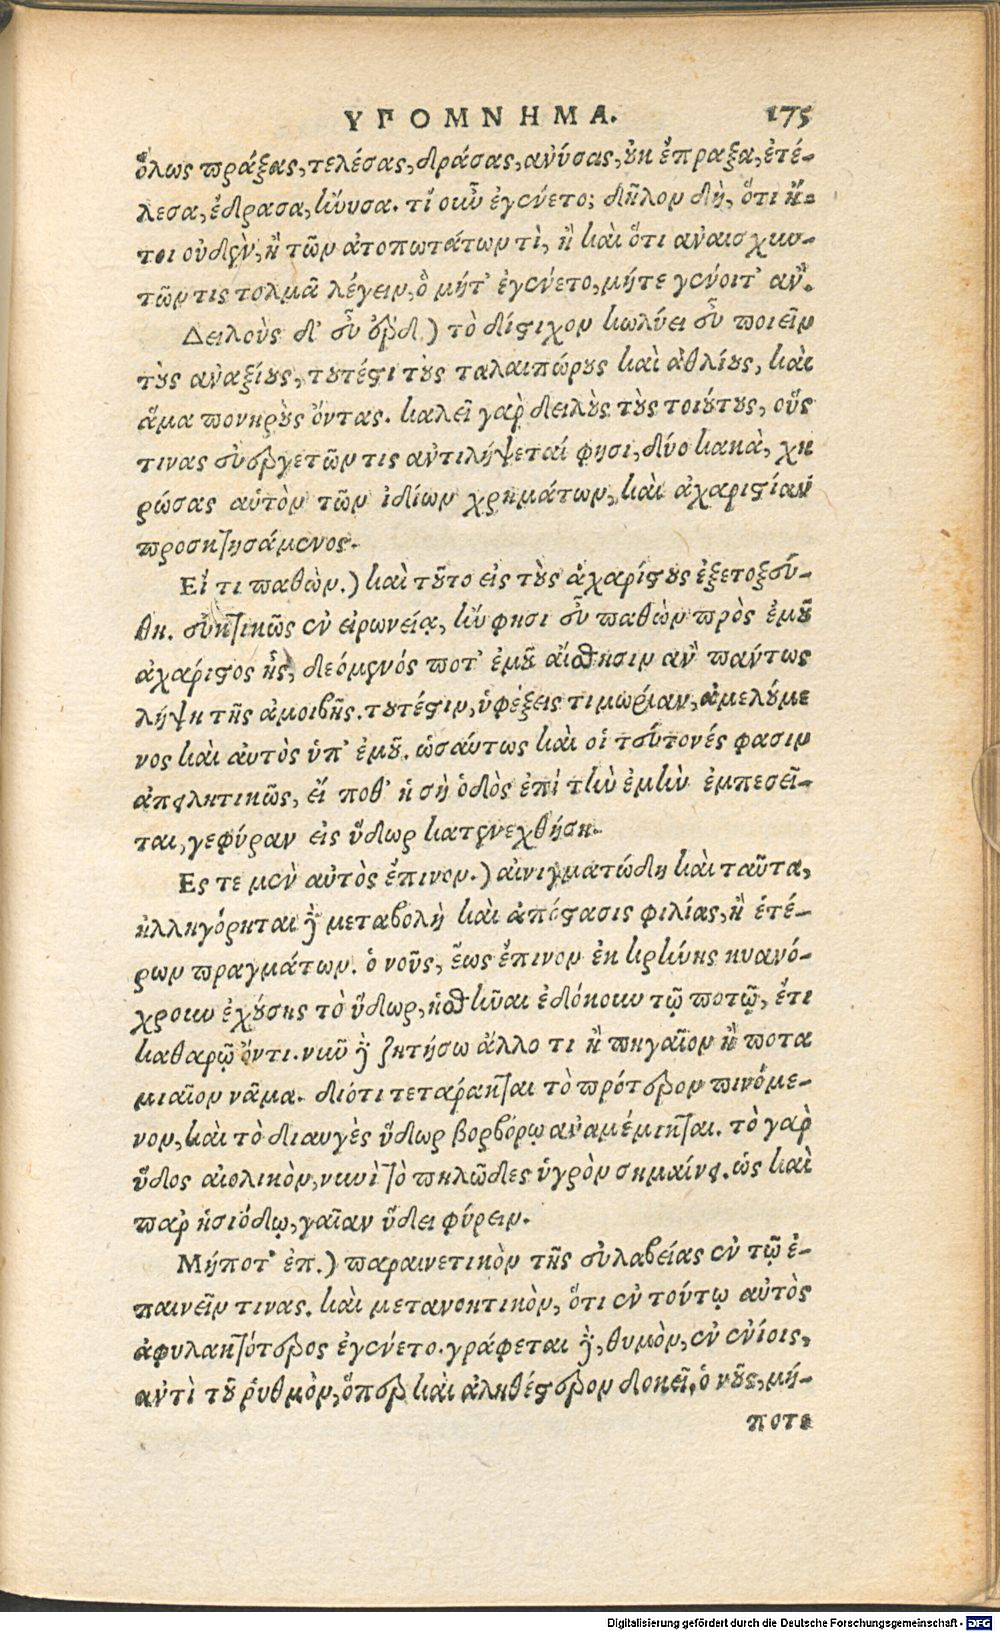 ΥΠΟΜΝΗΜΑ. 175
ὅλως πράξας, τελέσας, δράσας, ἀνύσας, οὐκ ἔπραξα, ἐτέ-
λεσα, ἔδρασα, ἤνυσα. τί οὖν ἐγένετο; δῆλον δὴ, ὅτι ἤ-
τοι οὐδὲν, ἢ τῶν ἀτοπωτάτων τὶ, ἢ καὶ ὅτι ἀναισχυν-
τῶν τις τολμᾶ λέγειν, ὃ μήτ' ἐγένετο, μήτε γένοιτ' ἂν.
Δειλοὺς δ' εὖ ἔρδ.) τὸ δίστιχον κωλύει εὖ ποιεῖν
τοὺς ἀναξίους, τουτέστι τοὺς ταλαιπώρους καὶ ἀθλίους, καὶ
ἅμα πονηροὺς ὄντας. καλεῖ γὰρ δειλοὺς τοὺς τοιούτους, οὕς
τινας εὐεργετῶν τις ἀντιλήψεταί φησι, δύο κακὰ, χη
ρώσας αὑτὸν τῶν ἰδίων χρημάτων, καὶ ἀχαριστίαν
προσκτησάμενος.
Εἴ τι παθὼν.) καὶ τοῦτο εἰς τοὺς ἀχαρίστους ἐξετοξεύ-
θη. εὐκτικῶς ἐν εἰρωνείᾳ, κἄν φησι εὖ παθὼν πρὸς ἐμοῦ
ἀχάριστος ᾖς, δεόμενός ποτ' ἐμοῦ αἴσθησιν ἂν πάντως
λήψῃ τῆς ἀμοιβῆς. τουτέστιν, ὑφέξεις τιμωρίαν, ἀμελούμε
νος καὶ αὐτὸς ὑπ' ἐμοῦ. ὡσαύτως καὶ οἱ τεύτονές φασιν
ἀπειλητικῶς, εἴ ποθ' ἡ σὴ ὁδὸς ἐπὶ τὴν ἐμὴν ἐμπεσεῖ-
ται, γεφύραν εἰς ὕδωρ κατενεχθήσῃ.
Ες τε μὲν αὐτὸς ἔπινον.) αἰνιγματώδη καὶ ταῦτα,
ἠλληγόρηται δὲ μεταβολὴ καὶ ἀπόστασις φιλίας, ἢ ἑτέ-
ρων πραγμάτων. ὁ νοῦς, ἕως ἔπινον ἐκ κρήνης κυανό-
χροιν ἐχούσης τὸ ὕδωρ, ἥσθηναι ἐδόκουν τῷ ποτῷ, ἔτι
καθαρῷ ὄντι. νῦν δὲ ζητήσω ἄλλο τι ἢ πηγαῖον ἢ ποτα
μιαῖον νᾶμα. διότι τετάρακται τὸ πρότερον πινόμε-
νον, καὶ τὸ διαυγὲς ὕδωρ βορβόρῳ ἀναμέμικται. τὸ γὰρ
ὕδος αἰολικὸν, νυνὶ τὸ πηλῶδες ὑγρὸν σημαίνει. ὡς καὶ
παρ ἡσιόδῳ, γαῖαν ὕδει φύρειν.
Μήποτ' ἐπ.) παραινετικὸν τῆς εὐλαβείας ἐν τῷ ἐ-
παινεῖν τινας. καὶ μετανοητικὸν, ὅτι ἐν τούτῳ αὐτὸς
ἀφυλακτότερος ἐγένετο. γράφεται δὲ, θυμὸν, ἐν ἐνίοις,
ἀντὶ τοῦ ῥυθμὸν, ὅπερ καὶ ἀληθέστερον δοκεῖ, ὁ νοῦς, μή-
ποτε
Digitalisierung gefördert durch die Deutsche Forschungsgemeinschaft - DFG